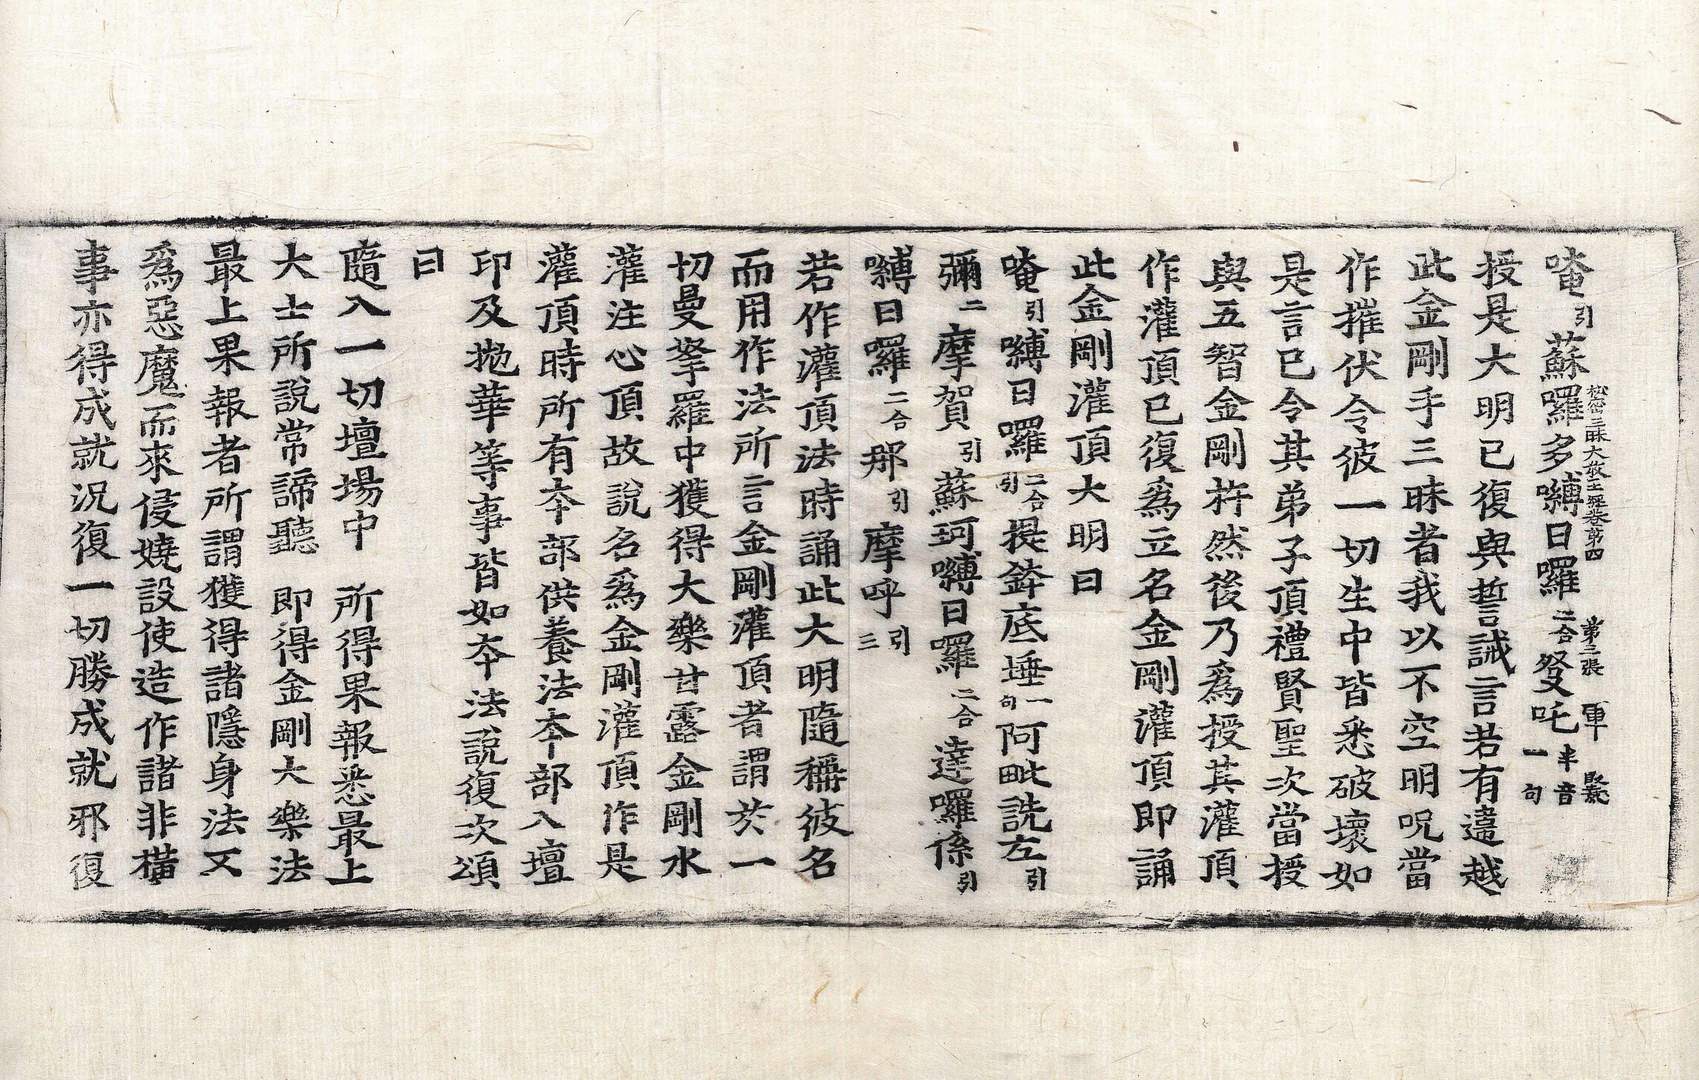 唵引蘇囉多嚩日囉二合發吒半音一句
秘密三昧大教王經卷第四 第二張 軍
授是大明已復與誓誡言若有違越
此金剛手三昧者我以不空明呪當
作摧伏令彼一切生中皆悉破壞如
是言已令其弟子頂禮賢聖次當授
與五智金剛杵然後乃為授其灌頂
作灌頂已復為立名金剛灌頂即誦
此金剛灌頂大明曰
唵引嚩日囉二合引提鉢底埵一句阿毗詵左引
彌二摩賀引蘇珂嚩日囉二合達囉係引
嚩日囉二合那引摩呼引三
若作灌頂法時誦此大明隨稱彼名
而用作法所言金剛灌頂者謂於一
切曼拏羅中獲得大樂甘露金剛水
灌注心頂故說名為金剛灌頂作是
灌頂時所有本部供養法本部入壇
印及拋華等事皆如本法說復次頌
曰
隨入一切壇場中 所得果報悉最上
大士所說常諦聽 即得金剛大樂法
最上果報者所謂獲得諸隱身法又
為惡魔而來侵嬈設使造作諸非橫
事亦得成就況復一切勝成就邪復